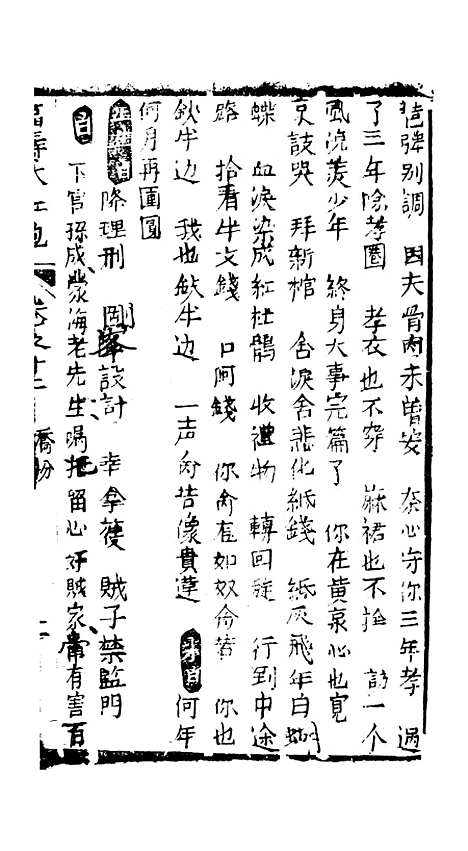 別調　因夫骨肉未曾安　奈心守你三年孝　過
了三年除孝圈　孝衣也不穿　麻裙也不拴　訪一个
風流美少年　終身大事完篇了　你在黃泉心也寬
哀哉哭　拜新棺　含淚含悲化紙錢　紙灰飛作白蝴
蝶　血淚染成紅杜鵑　收禮物　轉回旋　行到中途
路　拾着半文錢　口阿錢　你為何如奴命苦　你也
缺半边　我也缺半边　一声
何月再團圓　何年
降理刑　剛峯設計　幸拿獲　賊子禁監門
白　下官孫成蒙海老先生囑托留心奸賊家有害百
萬壽大紅袍　卷之十二